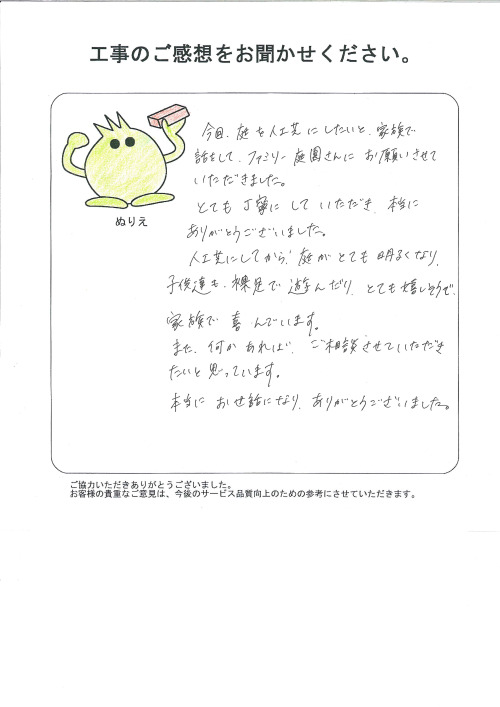 工事のご感想をお聞かせください。
今回、庭を人工芝にしたいと、家族で
話をして、ファミリー庭園さんに お願いさせて
いただきました。
とても丁寧にして いただき、本当に
ありがとうございました。
人工芝にしてから、庭が とても 明るくなり、
子供達も、裸足で 遊んだり、とても嬉しそうで、
家族で 喜んでいます。
また、何かあれば、ご相談させていただき
たいと思っています。
本当に お世話になり、ありがとうございました。
ぬりえ
ご協力いただきありがとうございました。
お客様の貴重なご意見は、今後のサービス品質向上のための参考にさせていただきます。